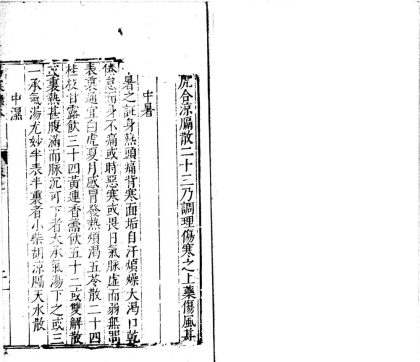 虎合涼膈散二十三乃調理傷寒之上藥傷風耳
中暑
暑之証身熱頭痛背寒面垢自汗煩燥大渴口乾
倦怠而身不痛或時惡寒或畏日氣脉虛而弱無
表裏通宜白虎夏月感冒發熱煩渴五苓散二十四
桂枝甘露飲三十四黃連香薷飲五十二或雙解散
或裏熱甚腹滿而脉沉可下者大承氣湯下之或三
一承氣湯尤妙半表半裏者小柴胡涼膈天水散
中濕